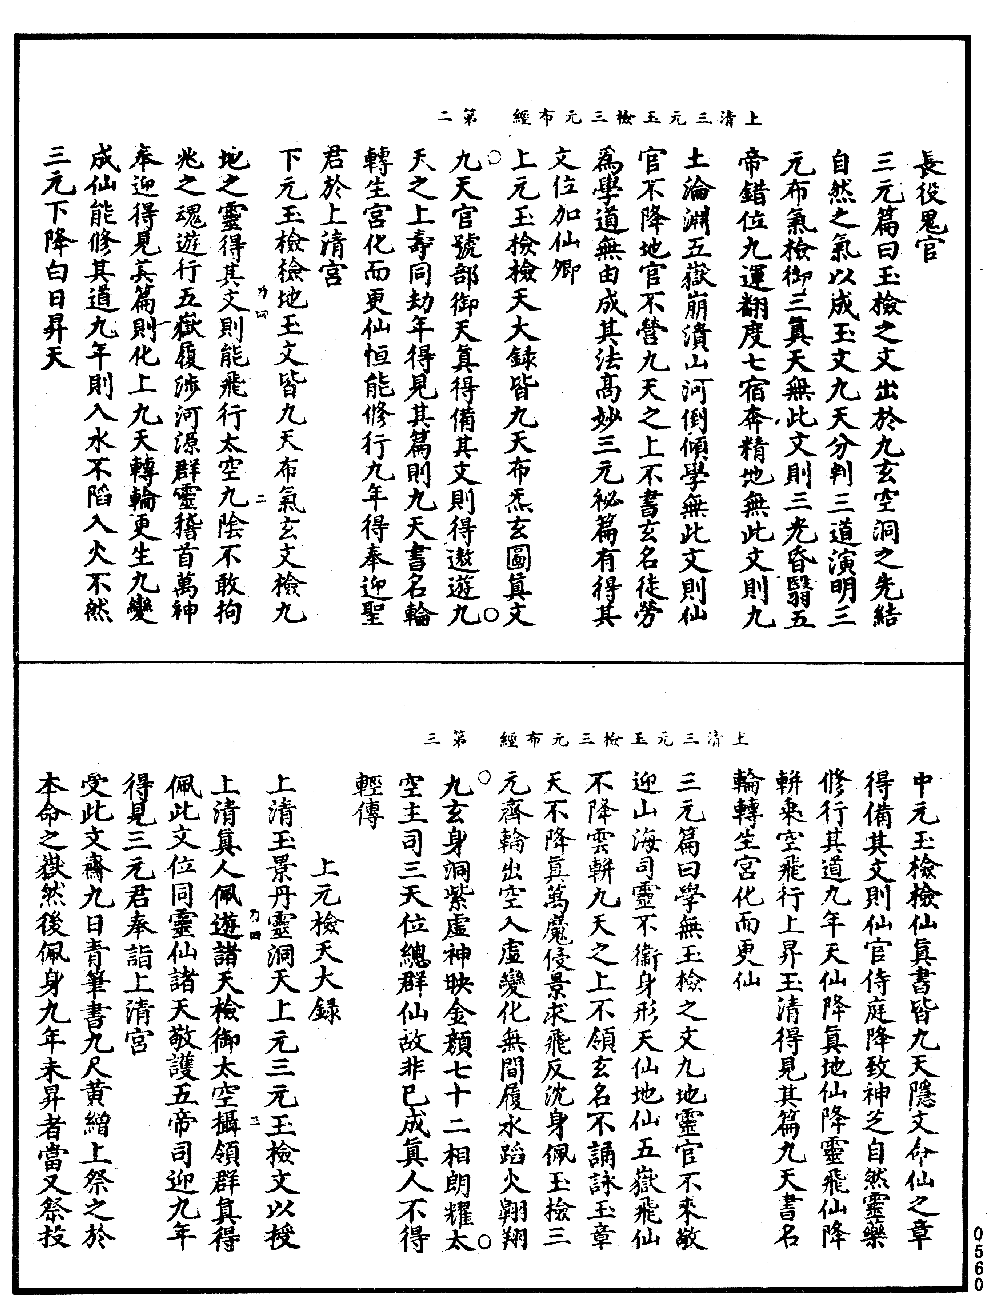 上清三元玉檢三元布經　第二
長役鬼官
三元篇曰玉檢之文出於九玄空洞之先結
自然之氣以成玉文九天分判三道演明三
元布氣檢御三真天無此文則三光昏翳五
帝錯位九運翻度七宿奔精地無此文則九
土淪淵五嶽崩潰山河倒傾學無此文則仙
官不降地官不營九天之上不書玄名徒勞
為學道無由成其法高妙三元祕篇有得其
文位加仙卿
上元玉檢檢天大錄皆九天布炁玄圖真文
○九天官號部御天真得備其文則得遨遊九○
天之上壽同劫年得見其篇則九天書名輪
轉生宮化而更仙恒能修行九年得奉迎聖
君於上清宮
下元玉檢檢地玉文皆九天布氣玄文檢九
地之靈得其文則能飛行太空九陰不敢拘
力四　二
兆之魂遊行五嶽履涉河源群靈稽首萬神
奉迎得見其篇則化上九天轉輪更生九變
成仙能修其道九年則入水不陷入火不然
三元下降白日昇天
上清三元玉檢三元布經　第三
中元玉檢檢仙真書皆九天隱文命仙之章
得備其文則仙官侍庭降致神芝自然靈藥
修行其道九年天仙降真地仙降靈飛仙降
軿乘空飛行上昇玉清得見其篇九天書名
輪轉生宮化而更仙
三元篇曰學無玉檢之文九地靈官不來敬
迎山海司靈不衛身形天仙地仙五嶽飛仙
不降雲軿九天之上不領玄名不誦詠玉章
天不降真萬魔侵景求飛反沈身佩玉檢三
元齊輪出空入虛變化無間履水蹈火翱翔
○九玄身洞紫虛神映金顏七十二相朗耀太○
空主司三天位總群仙故非已成真人不得
輕傳
上元檢天大錄
上清玉景丹靈洞天上元三元玉檢文以授
上清真人佩遊諸天檢御太空攝領群真得
力四　三
佩此文位同靈仙諸天敬護五帝司迎九年
得見三元君奉詣上清宮
受此文齋九日青筆書九尺黃繒上祭之於
本命之嶽然後佩身九年未昇者當又祭投
0560